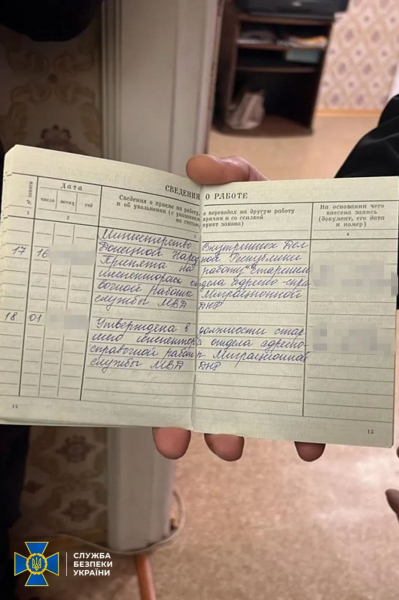 СВЕДЕНИЯ О РАБОТЕ
№ записи
Дата
число
месяц
год
Сведения о приеме на работу, о переводах на другую работу
и об увольнении (с указанием причин и со ссылкой
на статью, пункт закона)
На основании чего
внесена запись
(документ, его дата
и номер)
2
4
Министерство Внутренних Дел
Донецкой Народной Республики
17 16 Принята на работу Старшим
инспектором отдела адресно-спра
вочной работы Миграционной
службы МВД ДНР
18 01 Утверждена в должности стар
шего инспектора отдела адресно-
справочной работы Миграционной
службы МВД ДНР
14
15
СЛУЖБА
БЕЗПЕКИ
УКРАЇНИ